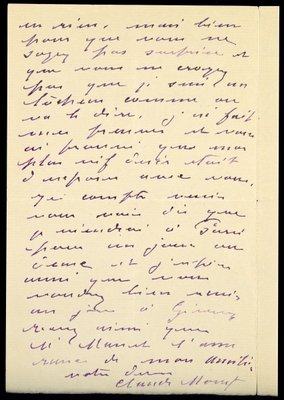 en rien, mais bien
pour que vous ne
soyez pas surprise et
que vous ne croyez
pas que je suis un
lâcheur comme on
va le dire, j'ai fait
mes preuves et vous
ai prouvé que mon
plus vif désir était
d'exposer avec vous.
je compte
vous voir dès que
je viendrai à Paris
pour un jour ou
deux et j'espère
aussi que vous
voudrez bien venir
un jour à Giverny
ainsi que
Mr Manet l'assu
rance de mon amitié
votre dévoué
Claude Monet